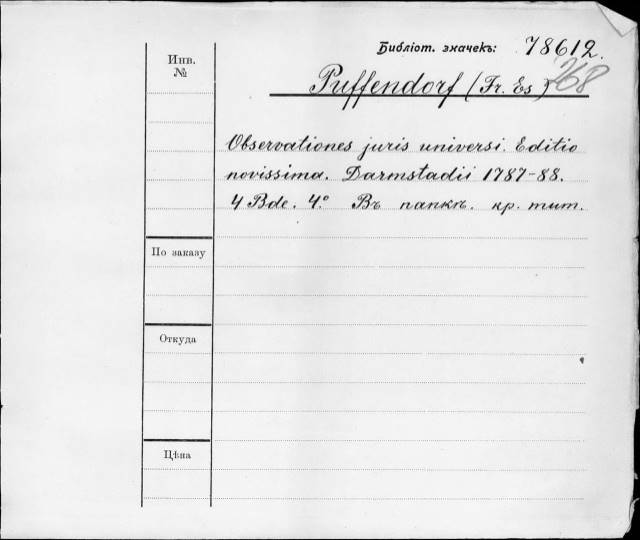 Библіот. значекъ: 78612.
268
Инв.
№
Puffendorf (Fr. Es)
Observationes juris universi. Editio
novissima. Darmstadii 1787-88.
4 Bde. 4° Въ папкѣ. кр. тит.
По заказу
Откуда
Цѣна